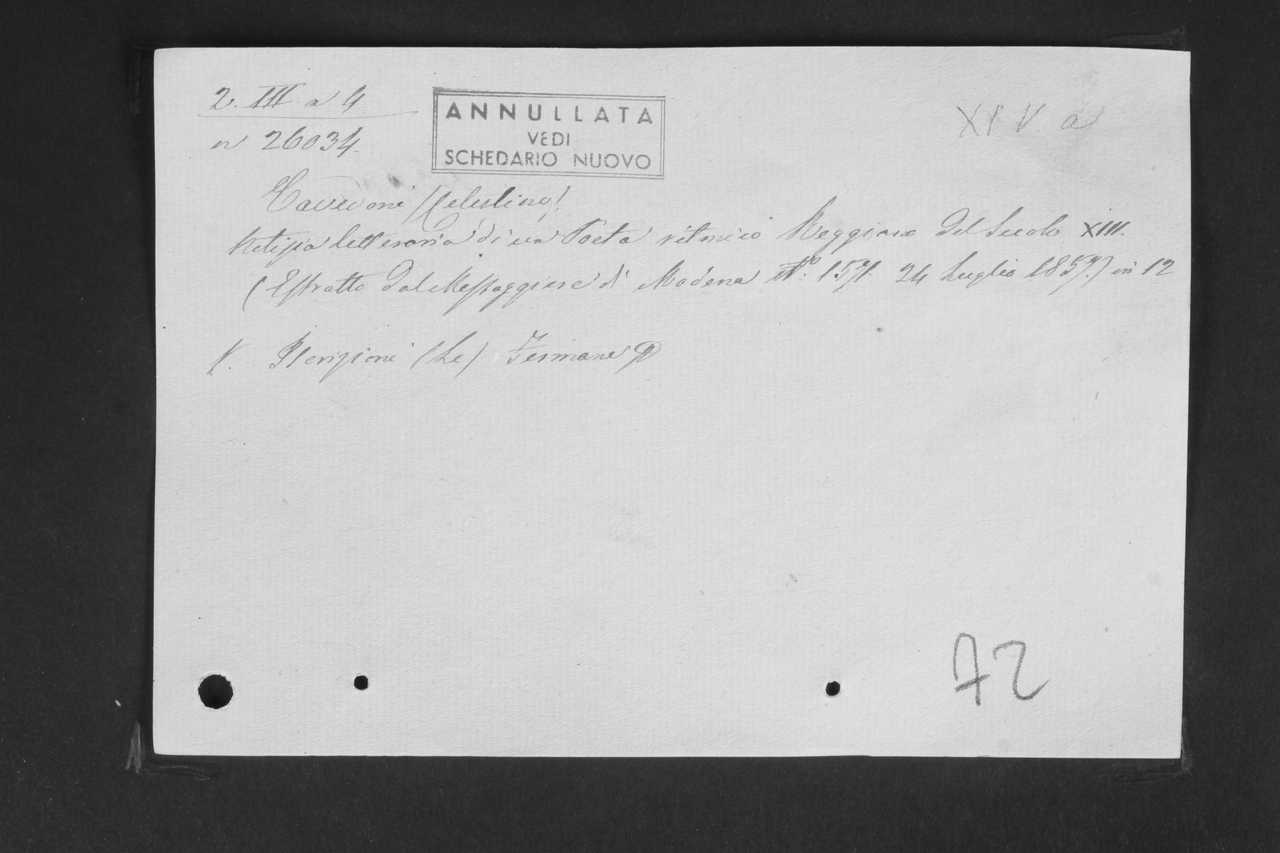 2. III a 4
XIV a
n 26034.
ANNULLATA
VEDI
SCHEDARIO NUOVO
Cavedoni (Celestino)
Notizia letteraria di un Poeta ritmico Reggiano del Secolo XIII.
(Estratto dal Messaggiere di Modena N.º 1571. 24 Luglio 1857.) in 12
V. Iscrizioni (Le)
72